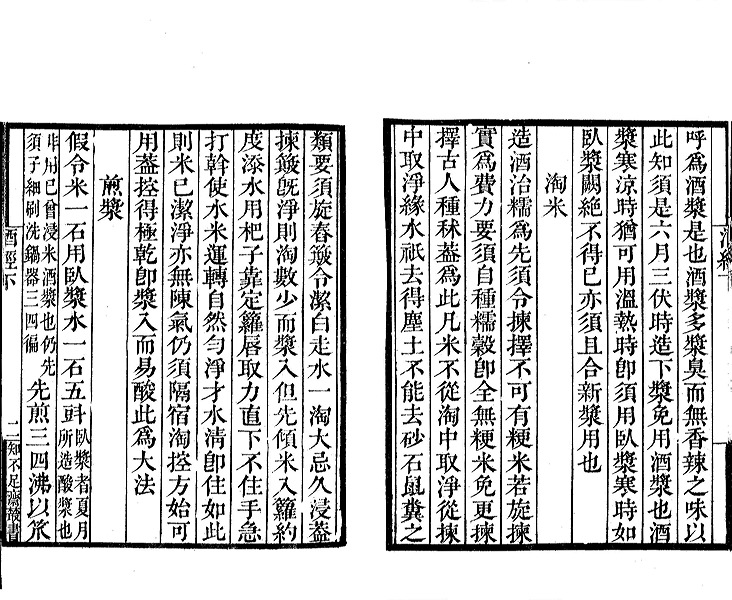 呼爲酒漿是也酒漿多漿臭而無香辣之味以
此知須是六月三伏時造下漿免用酒漿也酒
漿寒涼時猶可用溫熱時卽須用臥漿寒時如
臥漿闕絕不得已亦須且合新漿用也
淘米
造酒治糯爲先須令揀擇不可有粳米若旋揀
實爲費力要須自種糯穀卽全無粳米免更揀
擇古人種秫蓋爲此凡米不從淘中取淨從揀
中取淨緣水祇去得塵土不能去砂石鼠糞之
類要須旋舂簸令潔白走水一淘大忌久浸蓋
揀簸旣淨則淘數少而漿入但先傾米入籮約
度添水用杷子靠定籮唇取力直下不住手急
打斡使水米運轉自然勻淨才水清卽住如此
則米已潔淨亦無陳氣仍須隔宿淘控方始可
用蓋控得極乾卽漿入而易酸此爲大法
煎漿
假令米一石用臥漿水一石五㪷臥漿者夏月
所造酸漿也
非用已曾浸米酒漿也仍先
須子細刷洗鍋器三四徧先煎三四沸以笊
酒經下
二
知不足齋叢書